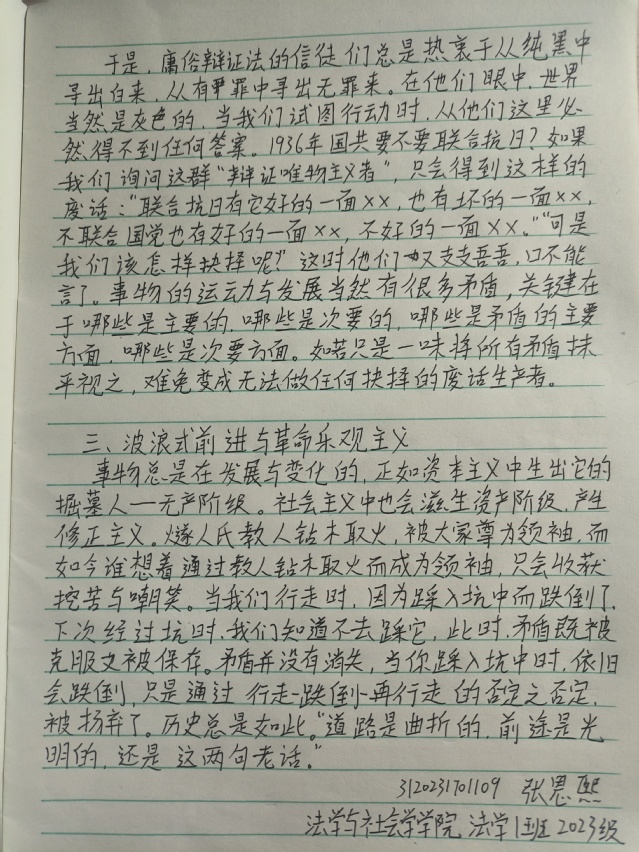 于是，庸俗辩证法的信徒们总是热衷于从纯黑中
寻出白来，从有罪中寻出无罪来。在他们眼中，世界
当然是灰色的，当我们试图行动时，从他们这里必
然得不到任何答案。1936年国共要不要联合抗日？如果
我们询问这群“辩证唯物主义者”，只会得到这样的
废话：“联合抗日有它好的一面××，也有坏的一面××，
不联合国党也有好的一面××，不好的一面××。”“可是
我们该怎样抉择呢？”这时他们又支支吾吾，口不能
言了。事物的运动与发展当然有很多矛盾，关键在
于哪些是主要的，哪些是次要的，哪些是矛盾的主要
方面，哪些是次要方面。如若只是一味将所有矛盾抹
平视之，难免变成无法做任何抉择的废话生产者。
三、波浪式前进与革命乐观主义
事物总是在发展与变化的，正如资本主义中生出它的
掘墓人—无产阶级。社会主义中也会滋生资产阶级，产生
修正主义。燧人氏教人钻木取火，被大家尊为领袖，而
如今谁想着通过教人钻木取火而成为领袖，只会收获
挖苦与嘲笑。当我们行走时，因为踩入坑中而跌倒了，
下次经过坑时，我们知道不去踩它，此时，矛盾既被
克服又被保存。矛盾并没有消失，当你踩入坑中时，依旧
会跌倒，只是通过行走-跌倒-再行走的否定之否定，
被扬弃了。历史总是如此。“道路是曲折的，前途是光
明的，还是这两句老话。”
3120231701109 张恩熙
法学与社会学学院 法学1班 2023级